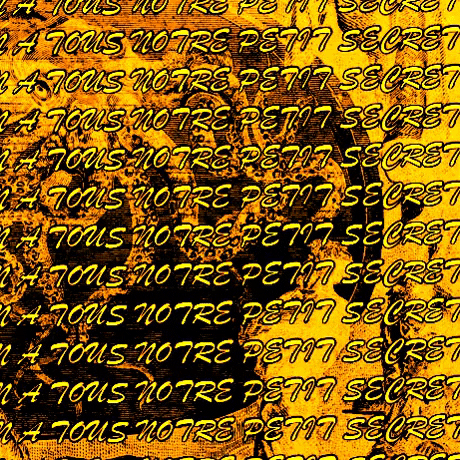 A TOUS NOTRE PETIT SECRET
A TOUS NOTRE PETIT SECRET
A TOUS NOTRE PETIT SECRET
A TOUS NOTRE PETIT SECRET
A TOUS NOTRE PETIT SECRET
A TOUS NOTRE PETIT SECRET
A TOUS NOTRE PETIT SECRET
A TOUS NOTRE PETIT SECRET
A TOUS NOTRE PETIT SECRET
A TOUS NOTRE PETIT SECRET
A TOUS NOTRE PETIT SECRET
A TOUS NOTRE PETIT SECRET